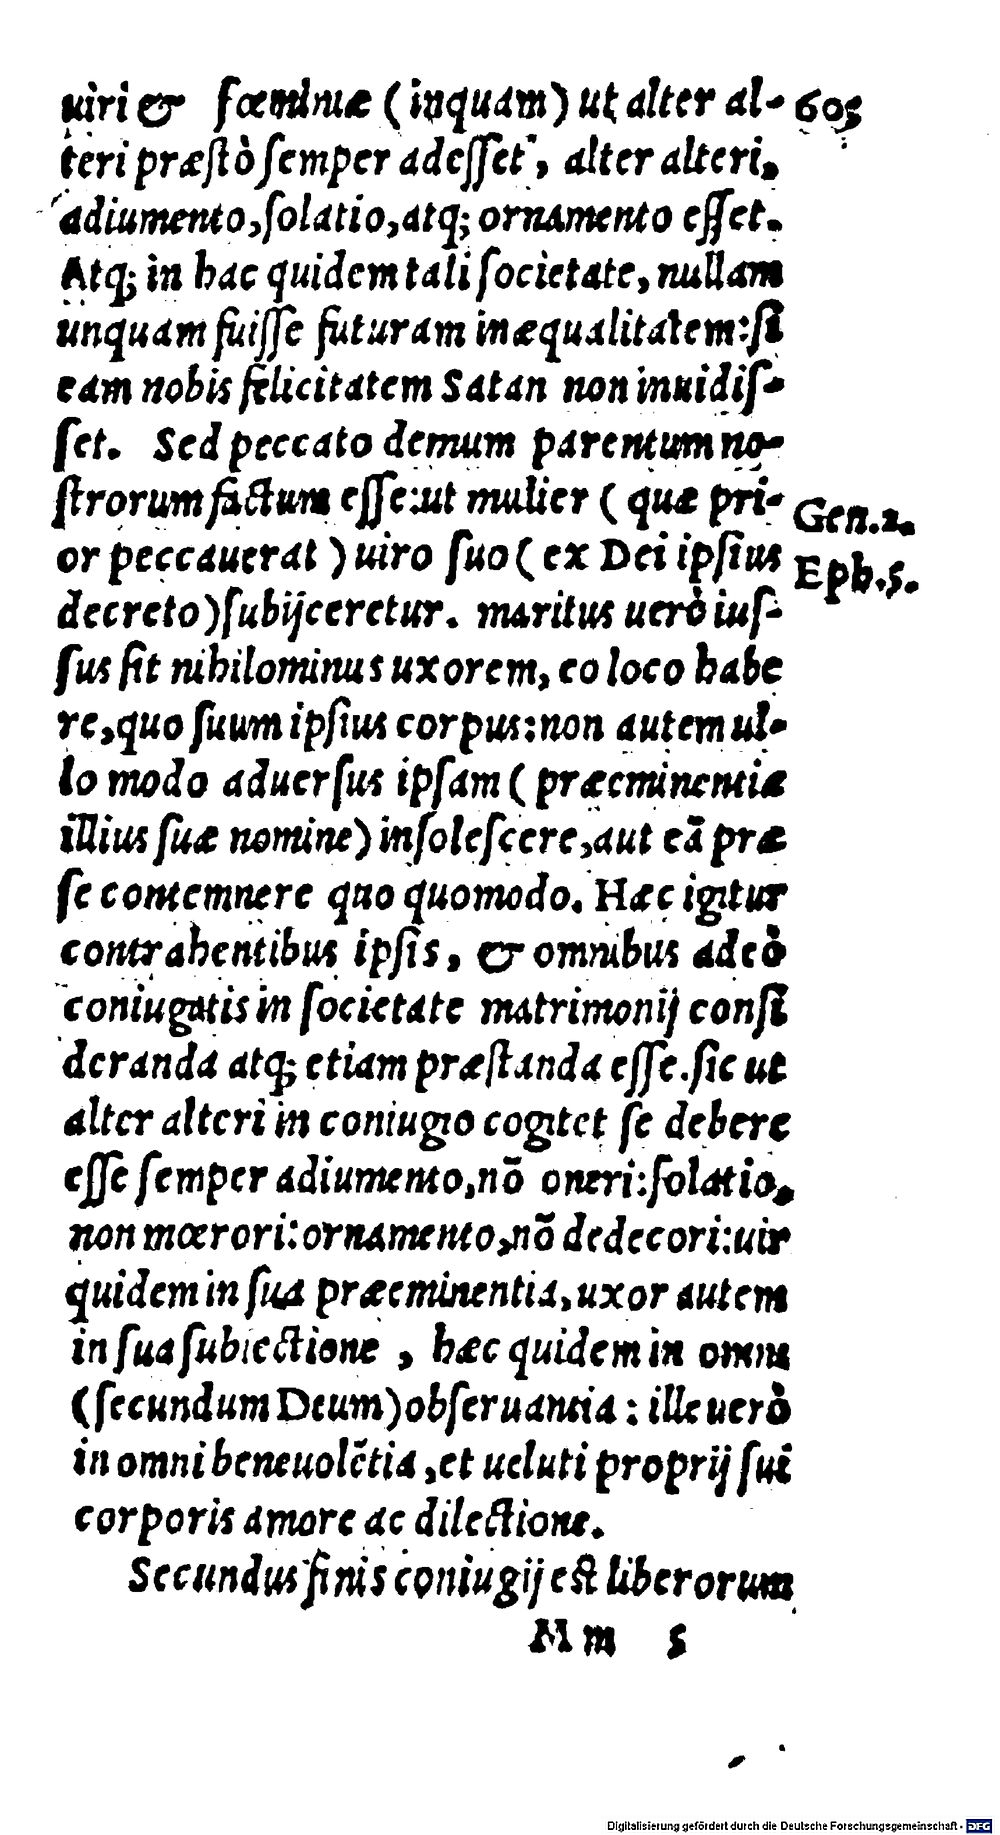 uiri & fœminæ (inquam) ut alter al- 605
teri præſtò ſemper adeſſet, alter alteri,
adiumento, ſolatio, atq; ornamento eſſet.
Atq; in hac quidem tali ſocietate, nullam
unquam fuiſſe futuram inæqualitatem: ſi
eam nobis felicitatem Satan non inuidiſ-
ſet. Sed peccato demum parentum no-
ſtrorum factum eſſe: ut mulier (quæ pri- Gen.2.
or peccauerat) uiro ſuo (ex Dei ipſius Eph.5.
decreto) ſubijceretur. maritus uerò iuſ-
ſus ſit nihilominus uxorem, eo loco habe
re, quo ſuum ipſius corpus: non autem ul-
lo modo aduerſus ipſam (præeminentiæ
illius ſuæ nomine) inſoleſcere, aut eā præ
ſe contemnere quo quomodo. Hæc igitur
contrahentibus ipſis, & omnibus adeò
coniugatis in ſocietate matrimonij conſi
deranda atq; etiam præſtanda eſſe. ſic ut
alter alteri in coniugio cogitet ſe debere
eſſe ſemper adiumento, nō oneri: ſolatio,
non mœrori: ornamento, nō dedecori: uir
quidem in ſua præeminentia, uxor autem
in ſua ſubiectione, hæc quidem in omni
(ſecundum Deum) obſeruantia: ille uerò
in omni beneuolētia, et ueluti proprij ſui
corporis amore ac dilectione.
Secundus finis coniugij eſt liberorum
Mm 5
Digitalisierung gefördert durch die Deutsche Forschungsgemeinschaft - DFG